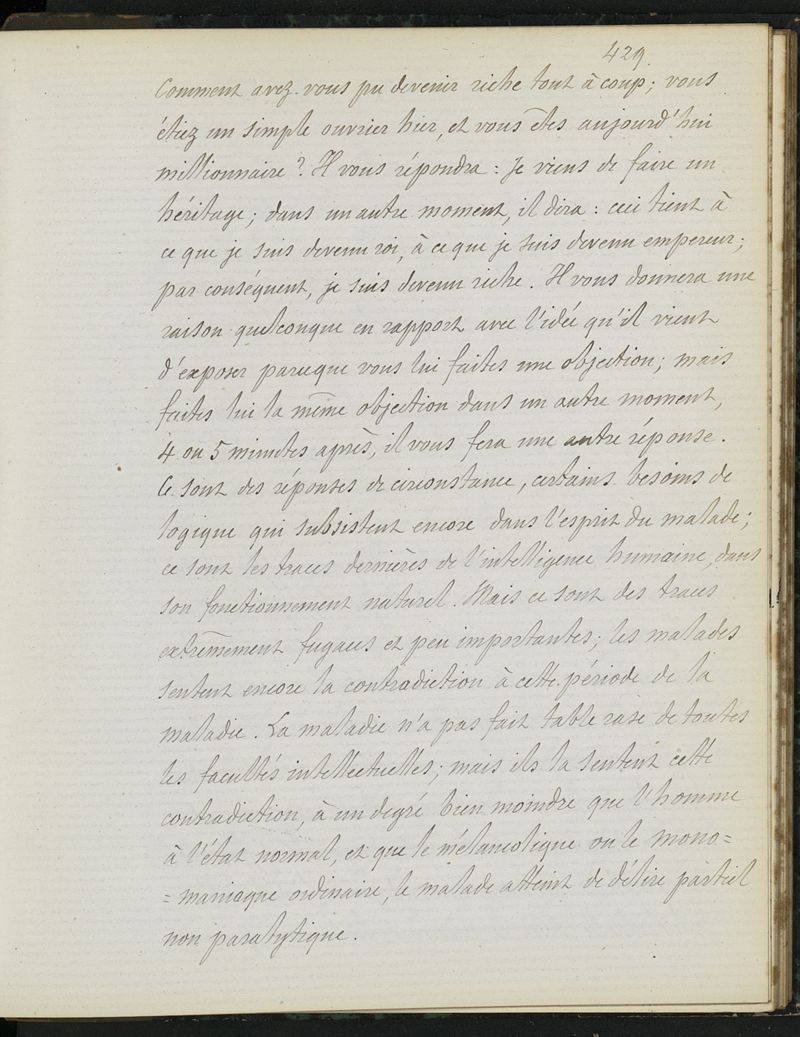 429.
Comment avez-vous pu devenir riche tout à coup ; vous
étiez un simple ouvrier hier, et vous êtes aujourd'hui
millionnaire ? Il vous répondra : Je viens de faire un
héritage ; dans un autre moment, il dira : ceci tient à
ce que je suis devenu roi, à ce que je suis devenu empereur ;
par conséquent, je suis devenu riche. Il vous donnera une
raison quelconque en rapport avec l'idée qu'il vient
d'exposer parceque vous lui faites une objection ; mais
faites lui la même objection dans un autre moment,
4 ou 5 minutes après, il vous fera une autre réponse.
Ce sont des réponses de circonstance, certains besoins de
logique qui subsistent encore dans l'esprit du malade ;
ce sont les traces dernières de l'intelligence humaine, dans
son fonctionnement naturel. Mais ce sont des traces
extrêmement fugaces et peu importantes ; les malades
sentent encore la contradiction à cette période de la
maladie. La maladie n'a pas fait table rase de toutes
les facultés intellectuelles ; mais ils la sentent cette
contradiction, à un degré bien moindre que l'homme
à l'état normal, et que le mélancolique ou le mono=
=maniaque ordinaire, le malade atteint de délire partiel
non paralytique.